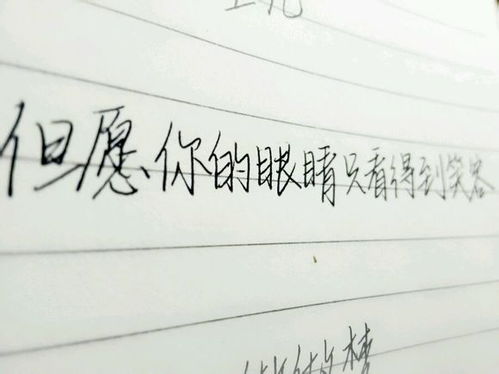 但愿你的眼睛只看得到笑容